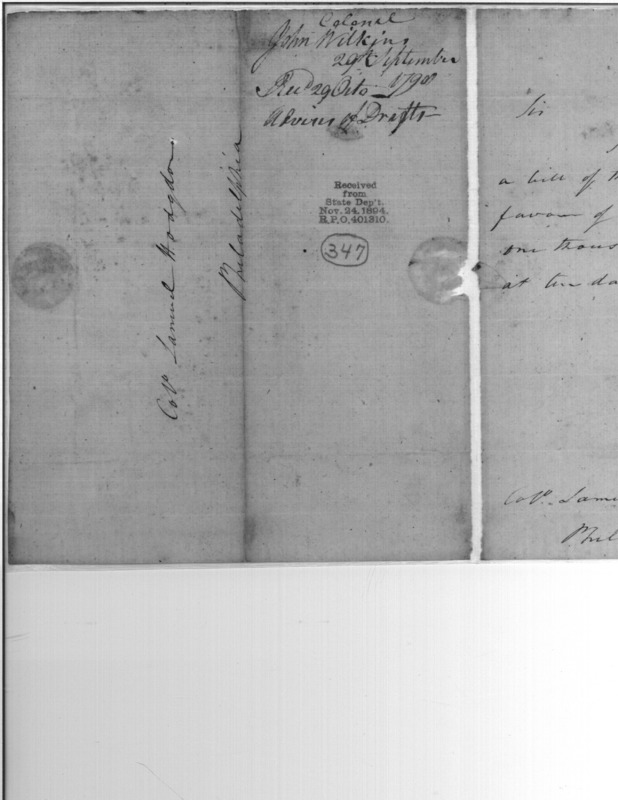 Colonel
John Wilkins
29th September
1798
Recd 29 Octo
Advices of Drafts
Received
from
State Dep't.
Nov. 24, 1894,
R.P.O. 401310.
347
Colo. Samuel Hodgdon
Philadelphia
Sir
a bill of
favour of
one thous
at ten da
Colo. Samu
Phil